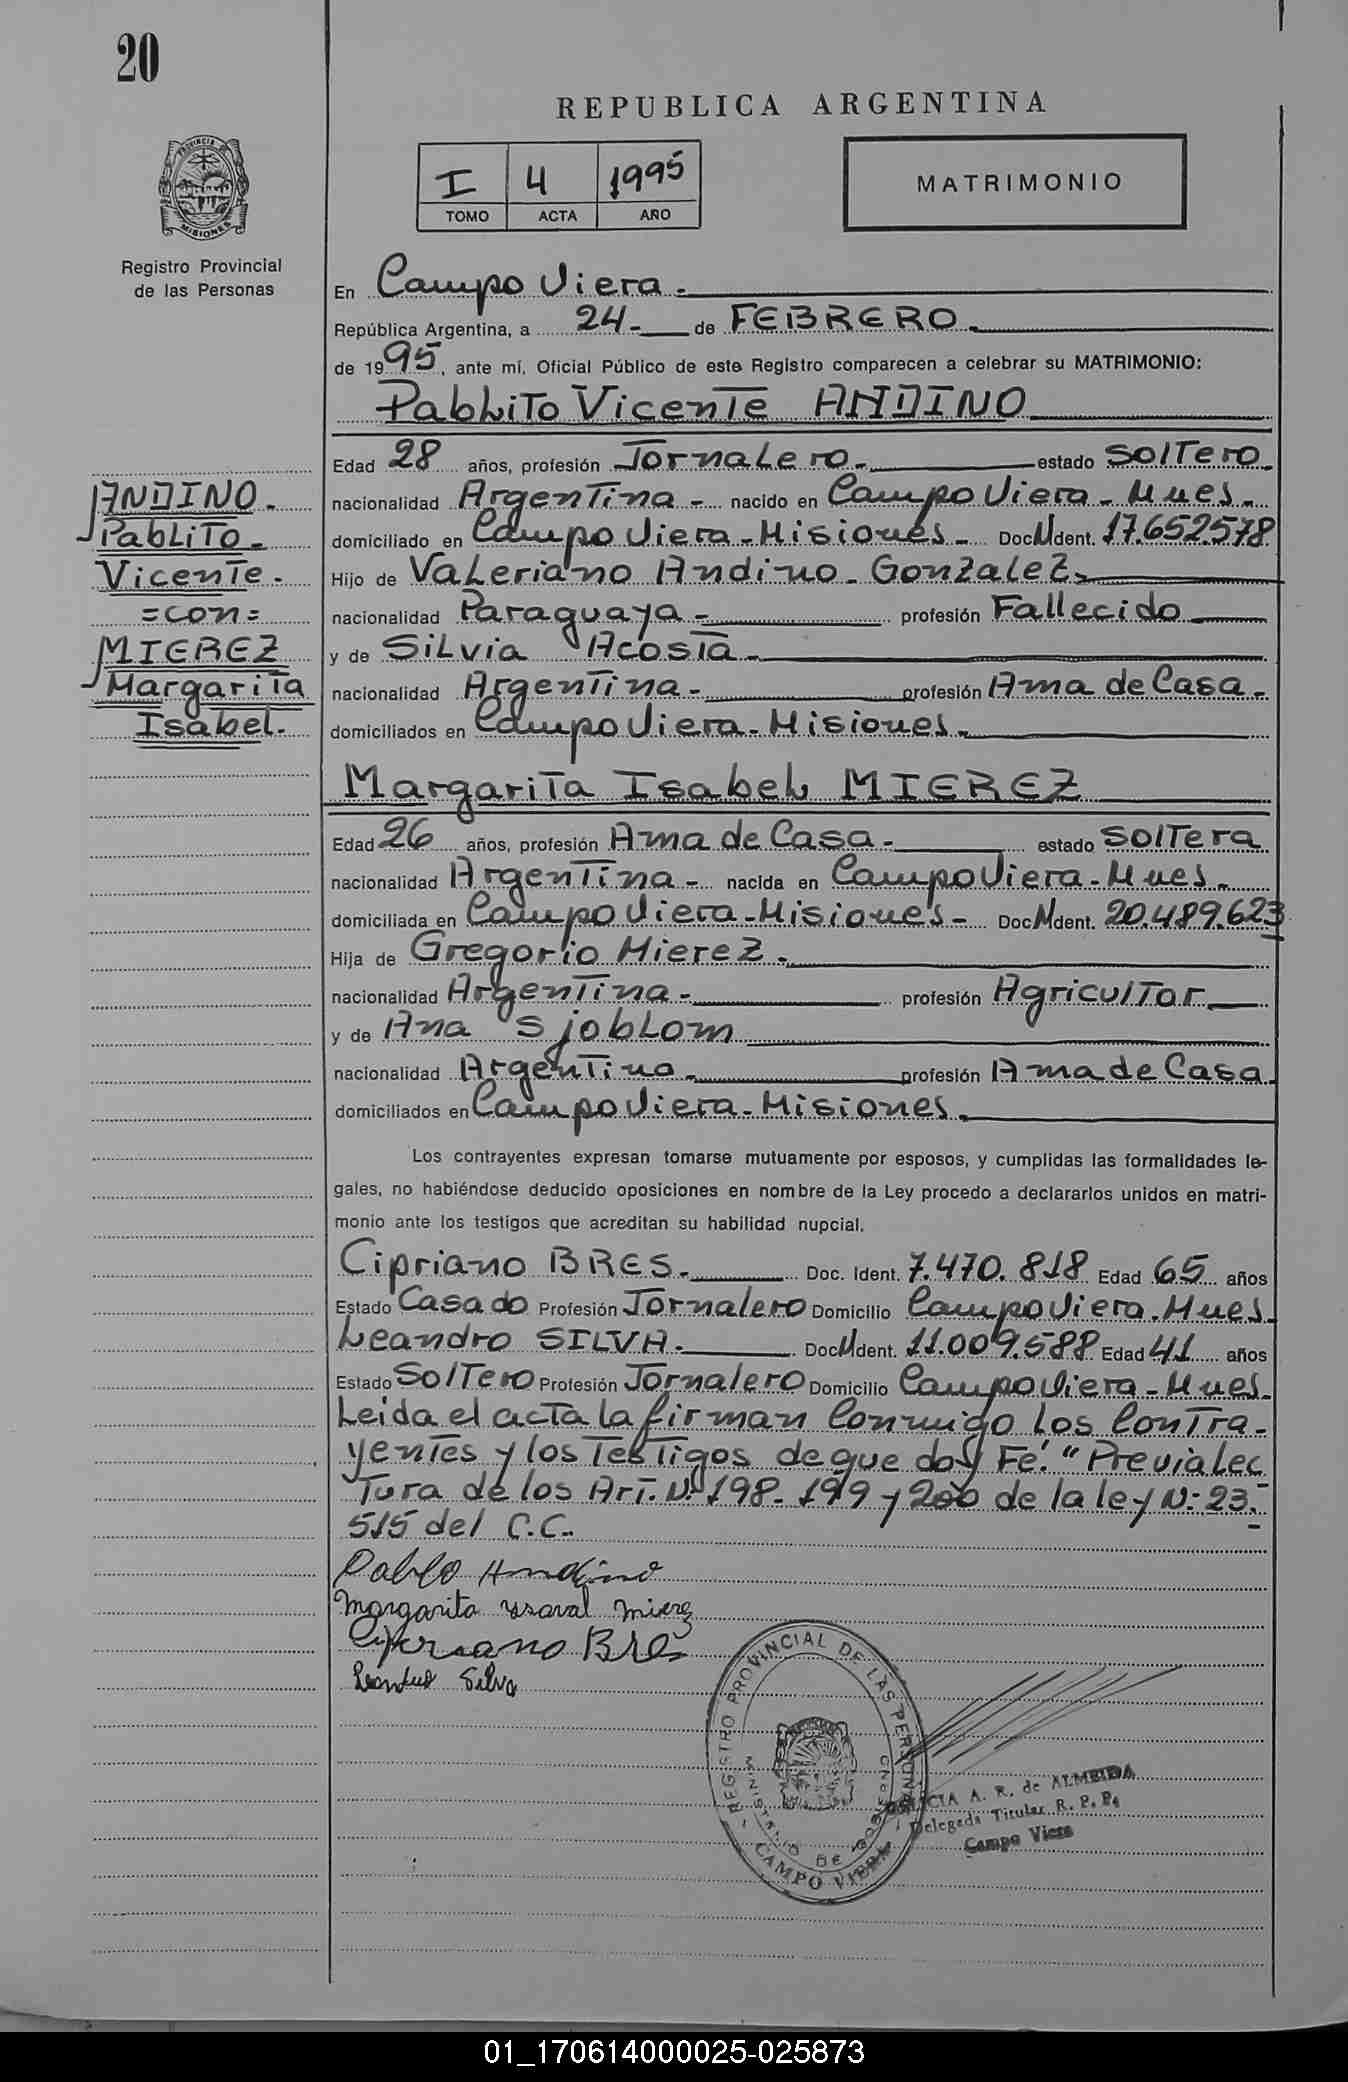 20
REPUBLICA ARGENTINA
I 4 1995
TOMO ACTA AÑO
MATRIMONIO
PROVINCIA DE
MISIONES
Registro Provincial
de las Personas
En Campo Viera.
República Argentina, a 24 - de FEBRERO
de 1995, ante mí, Oficial Público de este Registro comparecen a celebrar su MATRIMONIO:
PabLiTo Vicente ANDINO
Edad 28 años, profesión Jornalero. estado Soltero
nacionalidad Argentina - nacido en Campo Viera - Mnes.
domiciliado en Campo Viera - Misiones - Doc N Ident. 17.652.578
Hijo de Valeriano Andino - Gonzalez.
nacionalidad Paraguaya - profesión Fallecido
y de Silvia Acosta -
nacionalidad Argentina - profesión Ama de Casa.
domiciliados en Campo Viera - Misiones.
ANDINO.
PabLiTo -
Vicente.
=con=
MIEREZ
Margarita
Isabel.
Margarita Isabel MIEREZ
Edad 26 años, profesión Ama de Casa. estado Soltera
nacionalidad Argentina - nacida en Campo Viera - Mnes.
domiciliada en Campo Viera - Misiones - Doc N Ident. 20.489.623
Hija de Gregorio Mierez.
nacionalidad Argentina - profesión Agricultor
y de Ana Sjoblom
nacionalidad Argentina - profesión Ama de Casa.
domiciliados en Campo Viera - Misiones.
Los contrayentes expresan tomarse mutuamente por esposos, y cumplidas las formalidades le-
gales, no habiéndose deducido oposiciones en nombre de la Ley procedo a declararlos unidos en matri-
monio ante los testigos que acreditan su habilidad nupcial.
Cipriano BRES. Doc. Ident. 7.470.818 Edad 65 años
Estado Casado Profesión Jornalero Domicilio Campo Viera. Mnes.
Leandro SILVA. Doc N Ident. 11.009.588 Edad 41 años
Estado Soltero Profesión Jornalero Domicilio Campo Viera - Mnes.
Leida el acta la firman Conmigo los Contra-
yentes y los Testigos de que doy Fe. "Previa Lec
Tura de los Art. Nº 198 - 199 y 200 de la ley Nº 23.-
515 del C.C.
Pablo Andino
Margarita ysaval mierez
Cipriano Bres
Leandro Silva
REGISTRO PROVINCIAL DE LAS PERSONAS
MINISTERIO DE GOBIERNO
CAMPO VIERA
A. R. de ALMEIDA
Delegada Titular R. P. P.
Campo Viera
01_170614000025-025873